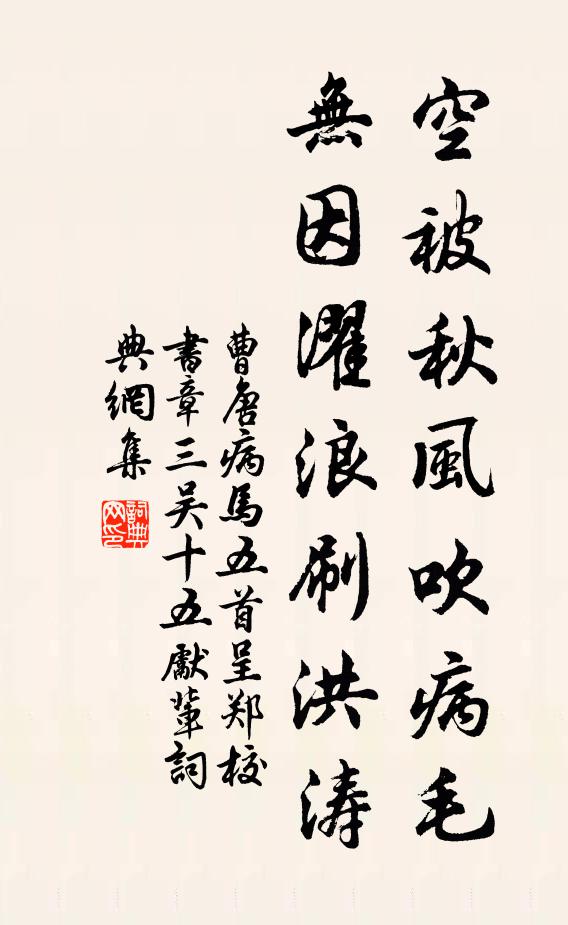 空被秋風吹病毛
無因濯浪刷洪濤
曹唐病馬五首呈郑校
書章三吴十五獻輩詞
典網集
詞典網印